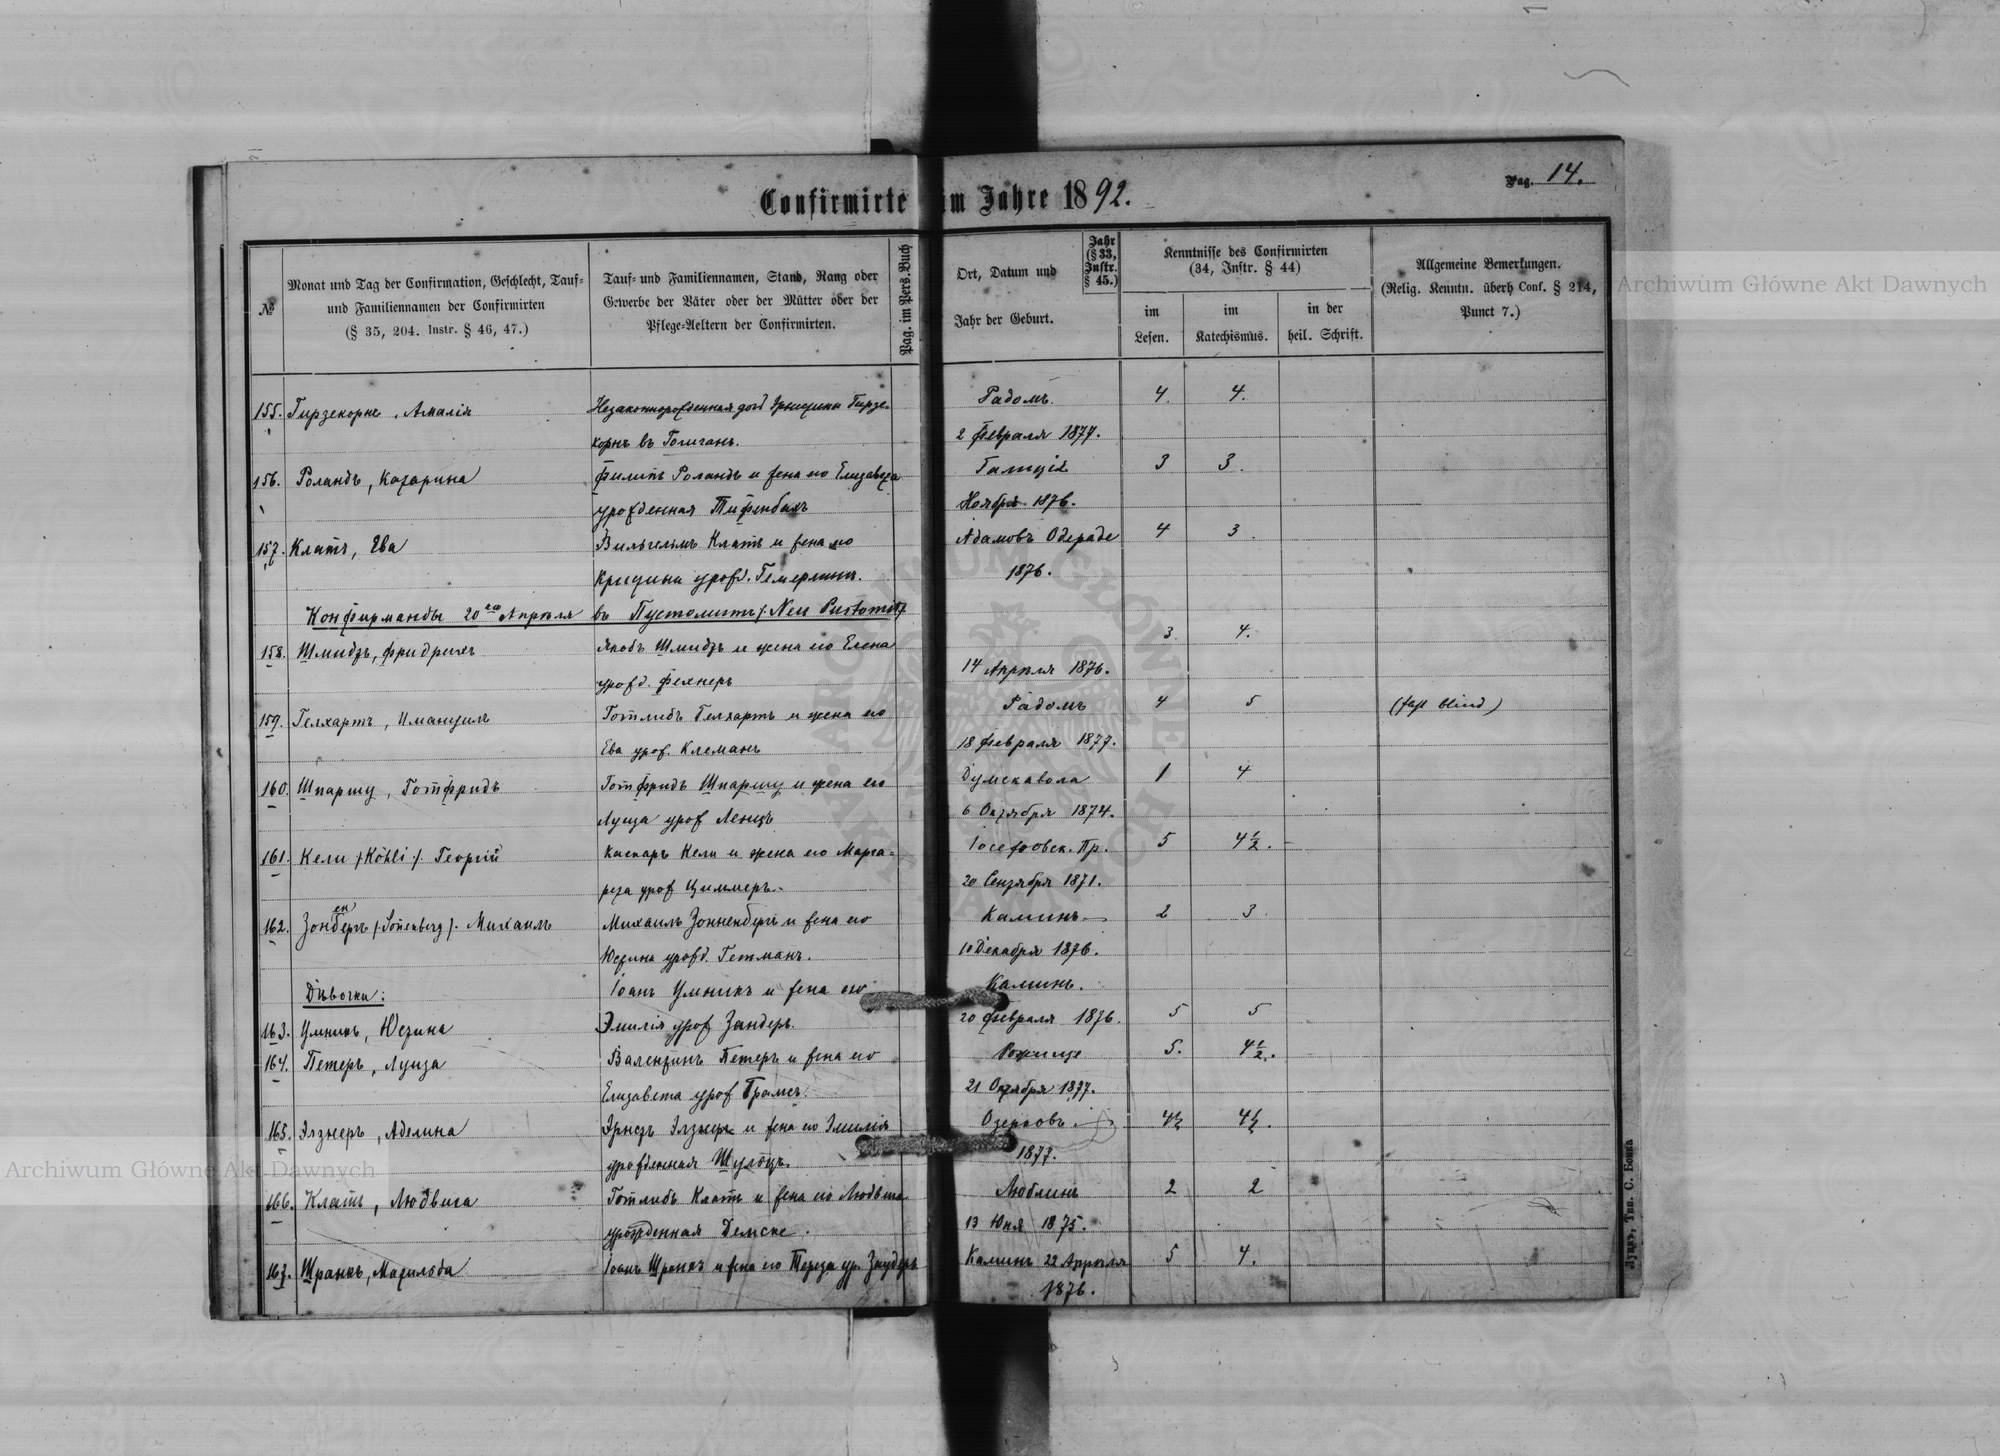 Pag. 14.
Confirmirte im Jahre 1892.
№
Monat und Tag der Confirmation, Geschlecht, Tauf-
und Familiennamen der Confirmirten
(§ 35, 204. Instr. § 46, 47.)
Tauf- und Familiennamen, Stand, Rang oder
Gewerbe der Väter oder der Mütter oder der
Pflege-Aeltern der Confirmirten.
Pag. im Pers. Buch
Ort, Datum und
Jahr der Geburt.
Jahr
(§ 33,
Instr.
§ 45.)
Kenntnisse des Confirmirten
(34, Instr. § 44)
im
Lesen.
im
Katechismus.
in der
heil. Schrift.
Allgemeine Bemerkungen.
(Relig. Kenntn. überh Conf. § 214,
Punct 7.)
155. Гирзекорне, Амалія Незаконнорожденная Гирзе- Радомъ. 4. 4.
корнъ въ 2 Февраля 1877.
156. Роландъ, Катарина Филипъ Роландъ и жена его Елизавета 3 3.
урожденная Тифенбахъ Ноября 1876.
157. Клатъ, Ева Вильгельмъ Клатъ и жена его Адамовъ 4 3.
урожд. 1876.
Конфирманды 20го Апрѣля въ Neu Pustomit
158. Шмидтъ, Фридрихъ Якобъ Шмидтъ и жена его Елена 3 4.
урожд. Фехнеръ 14 Апрѣля 1876.
159. Гелхартъ, Имануилъ Готлибъ Гелхартъ и жена его Радомъ 4 5 (fast blind)
Ева урож. Клеманъ 18 Февраля 1877.
160. Шпаршу, Готфридъ Готфридъ Шпаршу и жена его Думскавола 1 4
Луиза урож Ленцъ 6 Октября 1874.
161. Кели /Köhli/. Георгій Каспаръ Кели и жена его Марга- Іосефовск. Пр. 5 4½.
рета урож Циммеръ. 20 Сентября 1871.
162. Зонен­бергъ /Sonenberg/. Михаилъ Михаилъ Зонненбергъ и жена его Каминъ. 2 3
Юстина урожд. Гетманъ. 10 Декабря 1876.
Дѣвочки: Іоанъ Умникъ и жена его Каминъ.
163. Умникъ, Юстина Эмилія урож Зандеръ. 20 Февраля 1876. 5 5
164. Петеръ, Луиза Валентинъ Петеръ и жена его Рожище 5. 4½.
Елизавета урож Грамсъ. 21 Октября 1877.
165. Элзнеръ, Аделина Эрнстъ Элзнеръ и жена его Эмилія Озерковъ 4½ 4½.
урожденная Шульцъ. 1877.
166. Клатъ, Людвига Готлибъ Клатъ и жена его Людвига Люблинъ 2 2
урожденная Демске. 13 Юня 1875.
167. Шранкъ, Матильда Іоанъ Шранкъ и жена его Тереза ур. Каминъ 22 Апрѣля 5 4.
1876.
Луцкъ, Тип. С. Бонка
Archiwum Główne Akt Dawnych
Archiwum Główne Akt Dawnych